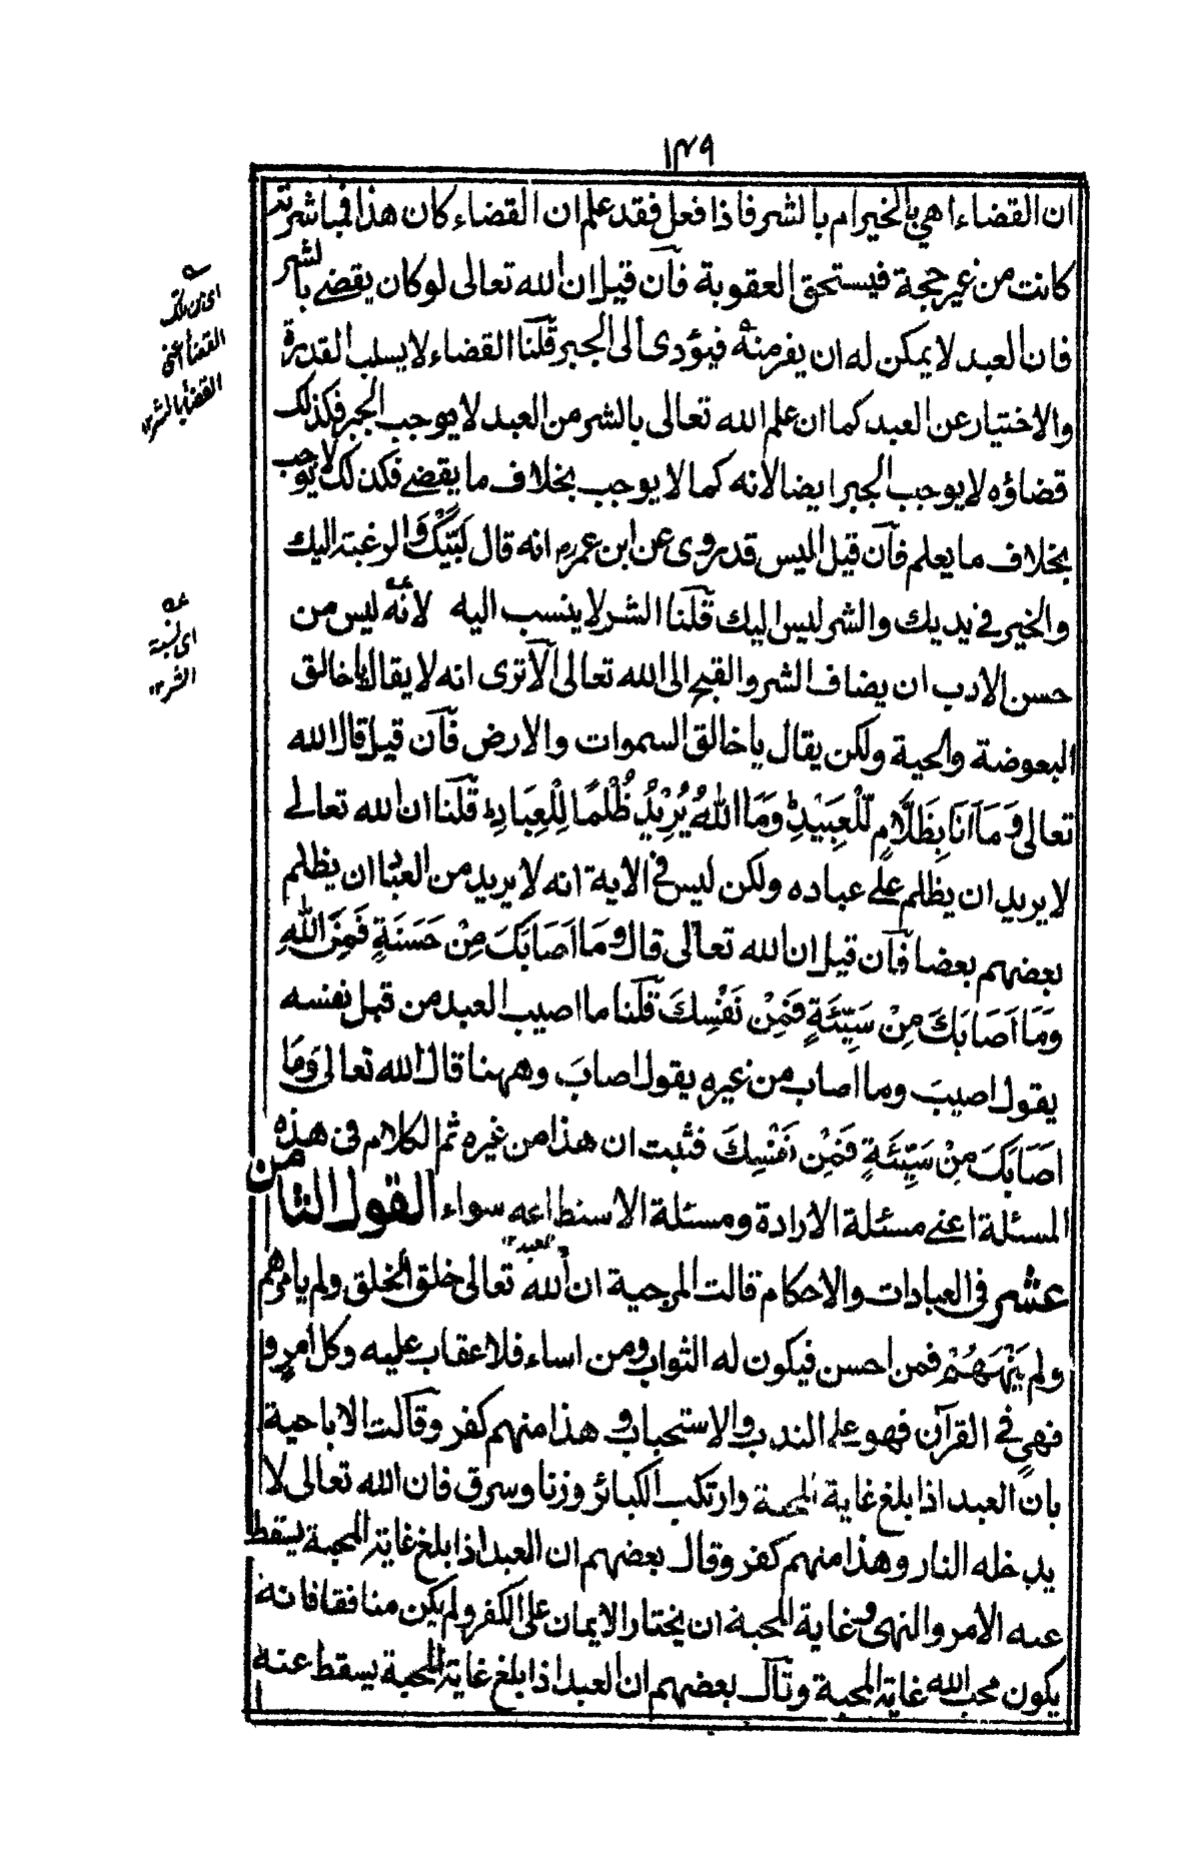 ١٤٩
ان القضاء اهي بالخير ام بالشر فاذا فعل فقد علم ان القضاء كان هذا فمباشرته
كانت من غير حجة فيستحق العقوبة فآن قيل ان الله تعالى لو كان يقضے بالشر
فان العبد لا يمكن له ان يفر منه فيؤدى الى الجبر قلنا القضاء لا يسلب القدرة
والاختيار عن العبد كما ان علم الله تعالى بالشر من العبد لا يوجب الجبر فكذلك
قضاؤه لا يوجب الجبر ايضا لانه كما لا يوجب بخلاف ما يقضے فكذلك لا يوجب
بخلاف ما يعلم فآن قيل اليس قد روى عن ابن عمر رم انه قال لَبَّيْكَ والرغبة اليك
والخير فى يديك والشر ليس اليك قلنا الشر لا ينسب اليه لانه ليس من
حسن الادب ان يضاف الشر والقبح الى الله تعالى الآترى انه لا يقال يا خالق
البعوضة والحية ولكن يقال يا خالق السموات والارض فآن قيل قال الله
تعالى وَمَآ اَنَا بِظَلَّامٍ لِّلْعَبِيْدِ وَمَا اللهُ يُرِيْدُ ظُلْمًا لِلْعِبَادِ قلنا ان الله تعالے
لا يريد ان يظلم علے عباده ولكن ليس فى الاية انه لا يريد من العباد ان يظلم
بعضهم بعضا فآن قيل ان الله تعالى قال وَمَا اَصَابَكَ مِنْ حَسَنَةٍ فَمِنَ اللهِ
وَمَا اَصَابَكَ مِنْ سَيِّئَةٍ فَمِنْ نَفْسِكَ قلنا ما اصيب العبد من قبل نفسه
يقول اصيبَ وما اصاب من غيره يقول اصابَ وههنا قال الله تعالى وَمَا
اَصَابَكَ مِنْ سَيِّئَةٍ فَمِنْ نَفْسِكَ فثبت ان هذا من غيره ثم الكلام فى هذه
المسئلة اعنے مسئلة الارادة ومسئلة الاستطاعه سواء القول الثامن
عشر فى العبادات والاحكام قالت المرجية ان الله تعالى خلق الخلق ولم يامرهم
ولم يَنْهَهُمْ فمن احسن فيكون له الثواب ومن اساء فلا عقاب عليه وكل امرٍ و
نهىٍ فى القرآن فهو على الندب والاستحباب و هذا منهم كفر وقالت الاباحية
بان العبد اذا بلغ غاية المحبة وارتكب الكبائر وزنا وسرق فان الله تعالى لا
يدخله النار وهذا منهم كفر وقال بعضهم ان العبد اذا بلغ غاية المحبة يسقط
عنه الامر والنهى وغاية المحبة ان يختار الايمان على الكفر ولم يكن منافقا فانه
يكون محب الله غاية المحبة وقال بعضهم ان العبد اذا بلغ غاية المحبة يسقط عنه
القضاء اعنى
القضاء بالشر ١٢
اى نسبة
الشر ١٢